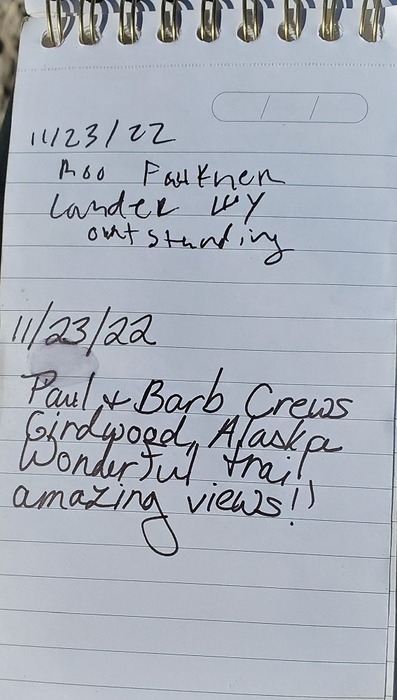 11/23/22
Roo Faulkner
Lander WY
outstanding
11/23/22
Paul & Barb Crews
Girdwood, Alaska
Wonderful trail
amazing views!!